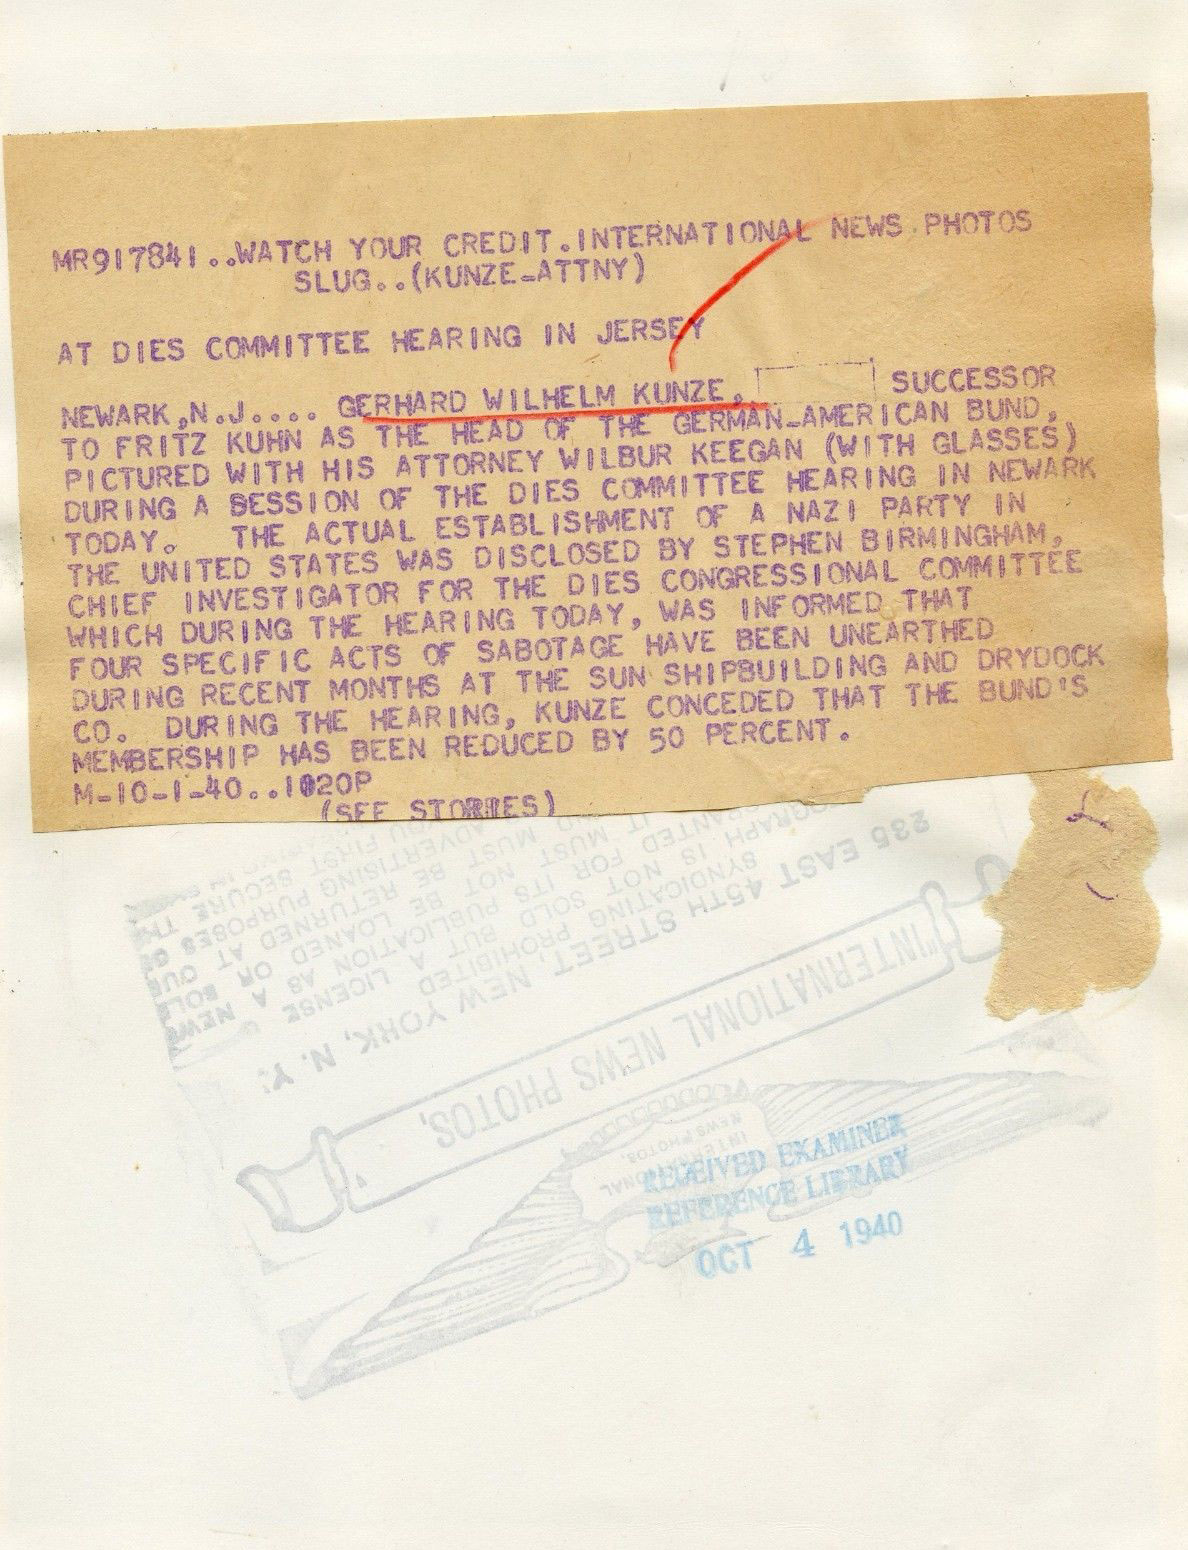 MR917841..WATCH YOUR CREDIT.INTERNATIONAL NEWS PHOTOS
SLUG..(KUNZE-ATTNY)
AT DIES COMMITTEE HEARING IN JERSEY
NEWARK,N.J.... GERHARD WILHELM KUNZE, SUCCESSOR
TO FRITZ KUHN AS THE HEAD OF THE GERMAN-AMERICAN BUND,
PICTURED WITH HIS ATTORNEY WILBUR KEEGAN (WITH GLASSES)
DURING A SESSION OF THE DIES COMMITTEE HEARING IN NEWARK
TODAY. THE ACTUAL ESTABLISHMENT OF A NAZI PARTY IN
THE UNITED STATES WAS DISCLOSED BY STEPHEN BIRMINGHAM,
CHIEF INVESTIGATOR FOR THE DIES CONGRESSIONAL COMMITTEE
WHICH DURING THE HEARING TODAY, WAS INFORMED THAT
FOUR SPECIFIC ACTS OF SABOTAGE HAVE BEEN UNEARTHED
DURING RECENT MONTHS AT THE SUN SHIPBUILDING AND DRYDOCK
CO. DURING THE HEARING, KUNZE CONCEDED THAT THE BUND'S
MEMBERSHIP HAS BEEN REDUCED BY 50 PERCENT.
M-10-1-40..1020P
(SEE STORIES)
235 EAST 45TH STREET, NEW YORK, N. Y.
"INTERNATIONAL NEWS PHOTOS,
INTERNATIONAL
NEWS PHOTOS.
RECEIVED EXAMINER
REFERENCE LIBRARY
OCT 4 1940